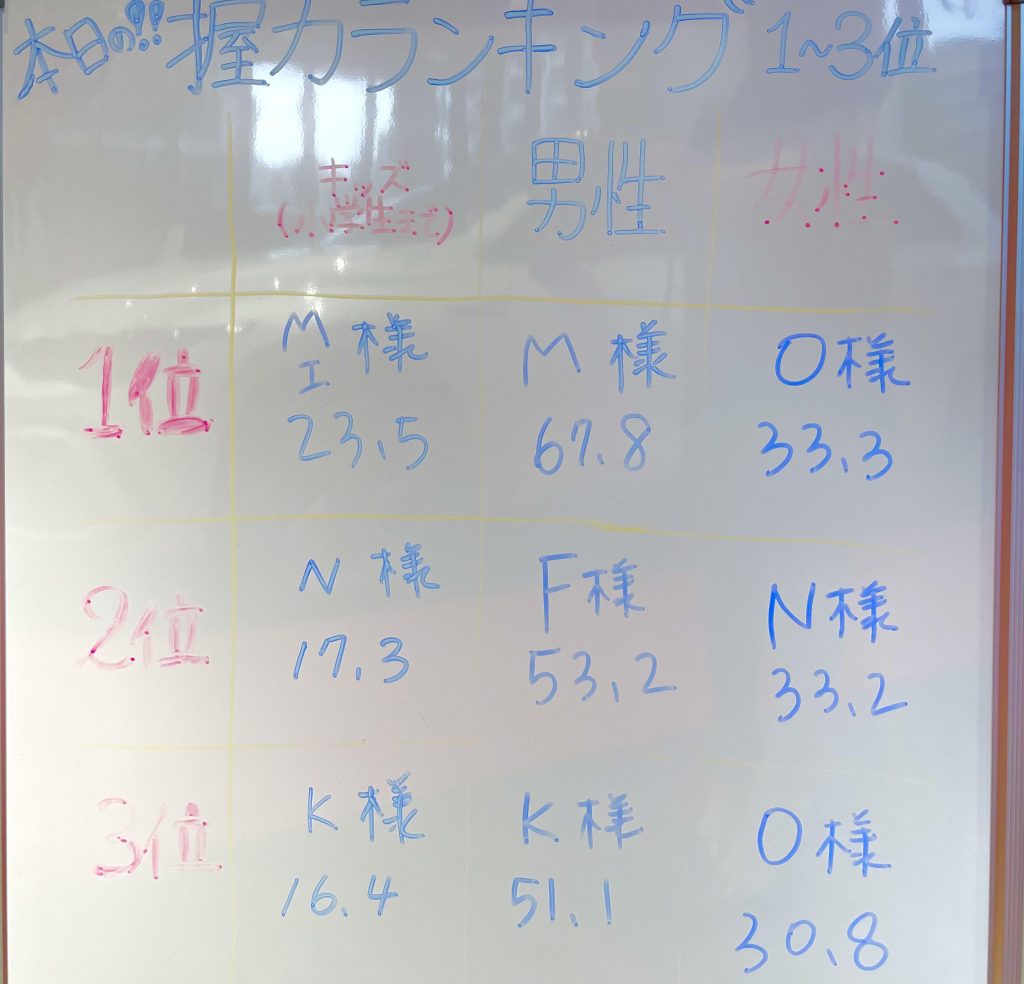 本日の!! 握力ランキング 1~3位
キッズ 男性 女性
(小学生まで)
1位 M I 様 M 様 O様
23.5 67.8 33.3
2位 N 様 F様 N様
17.3 53.2 33.2
3位 K 様 K 様 O様
16.4 51.1 30.8